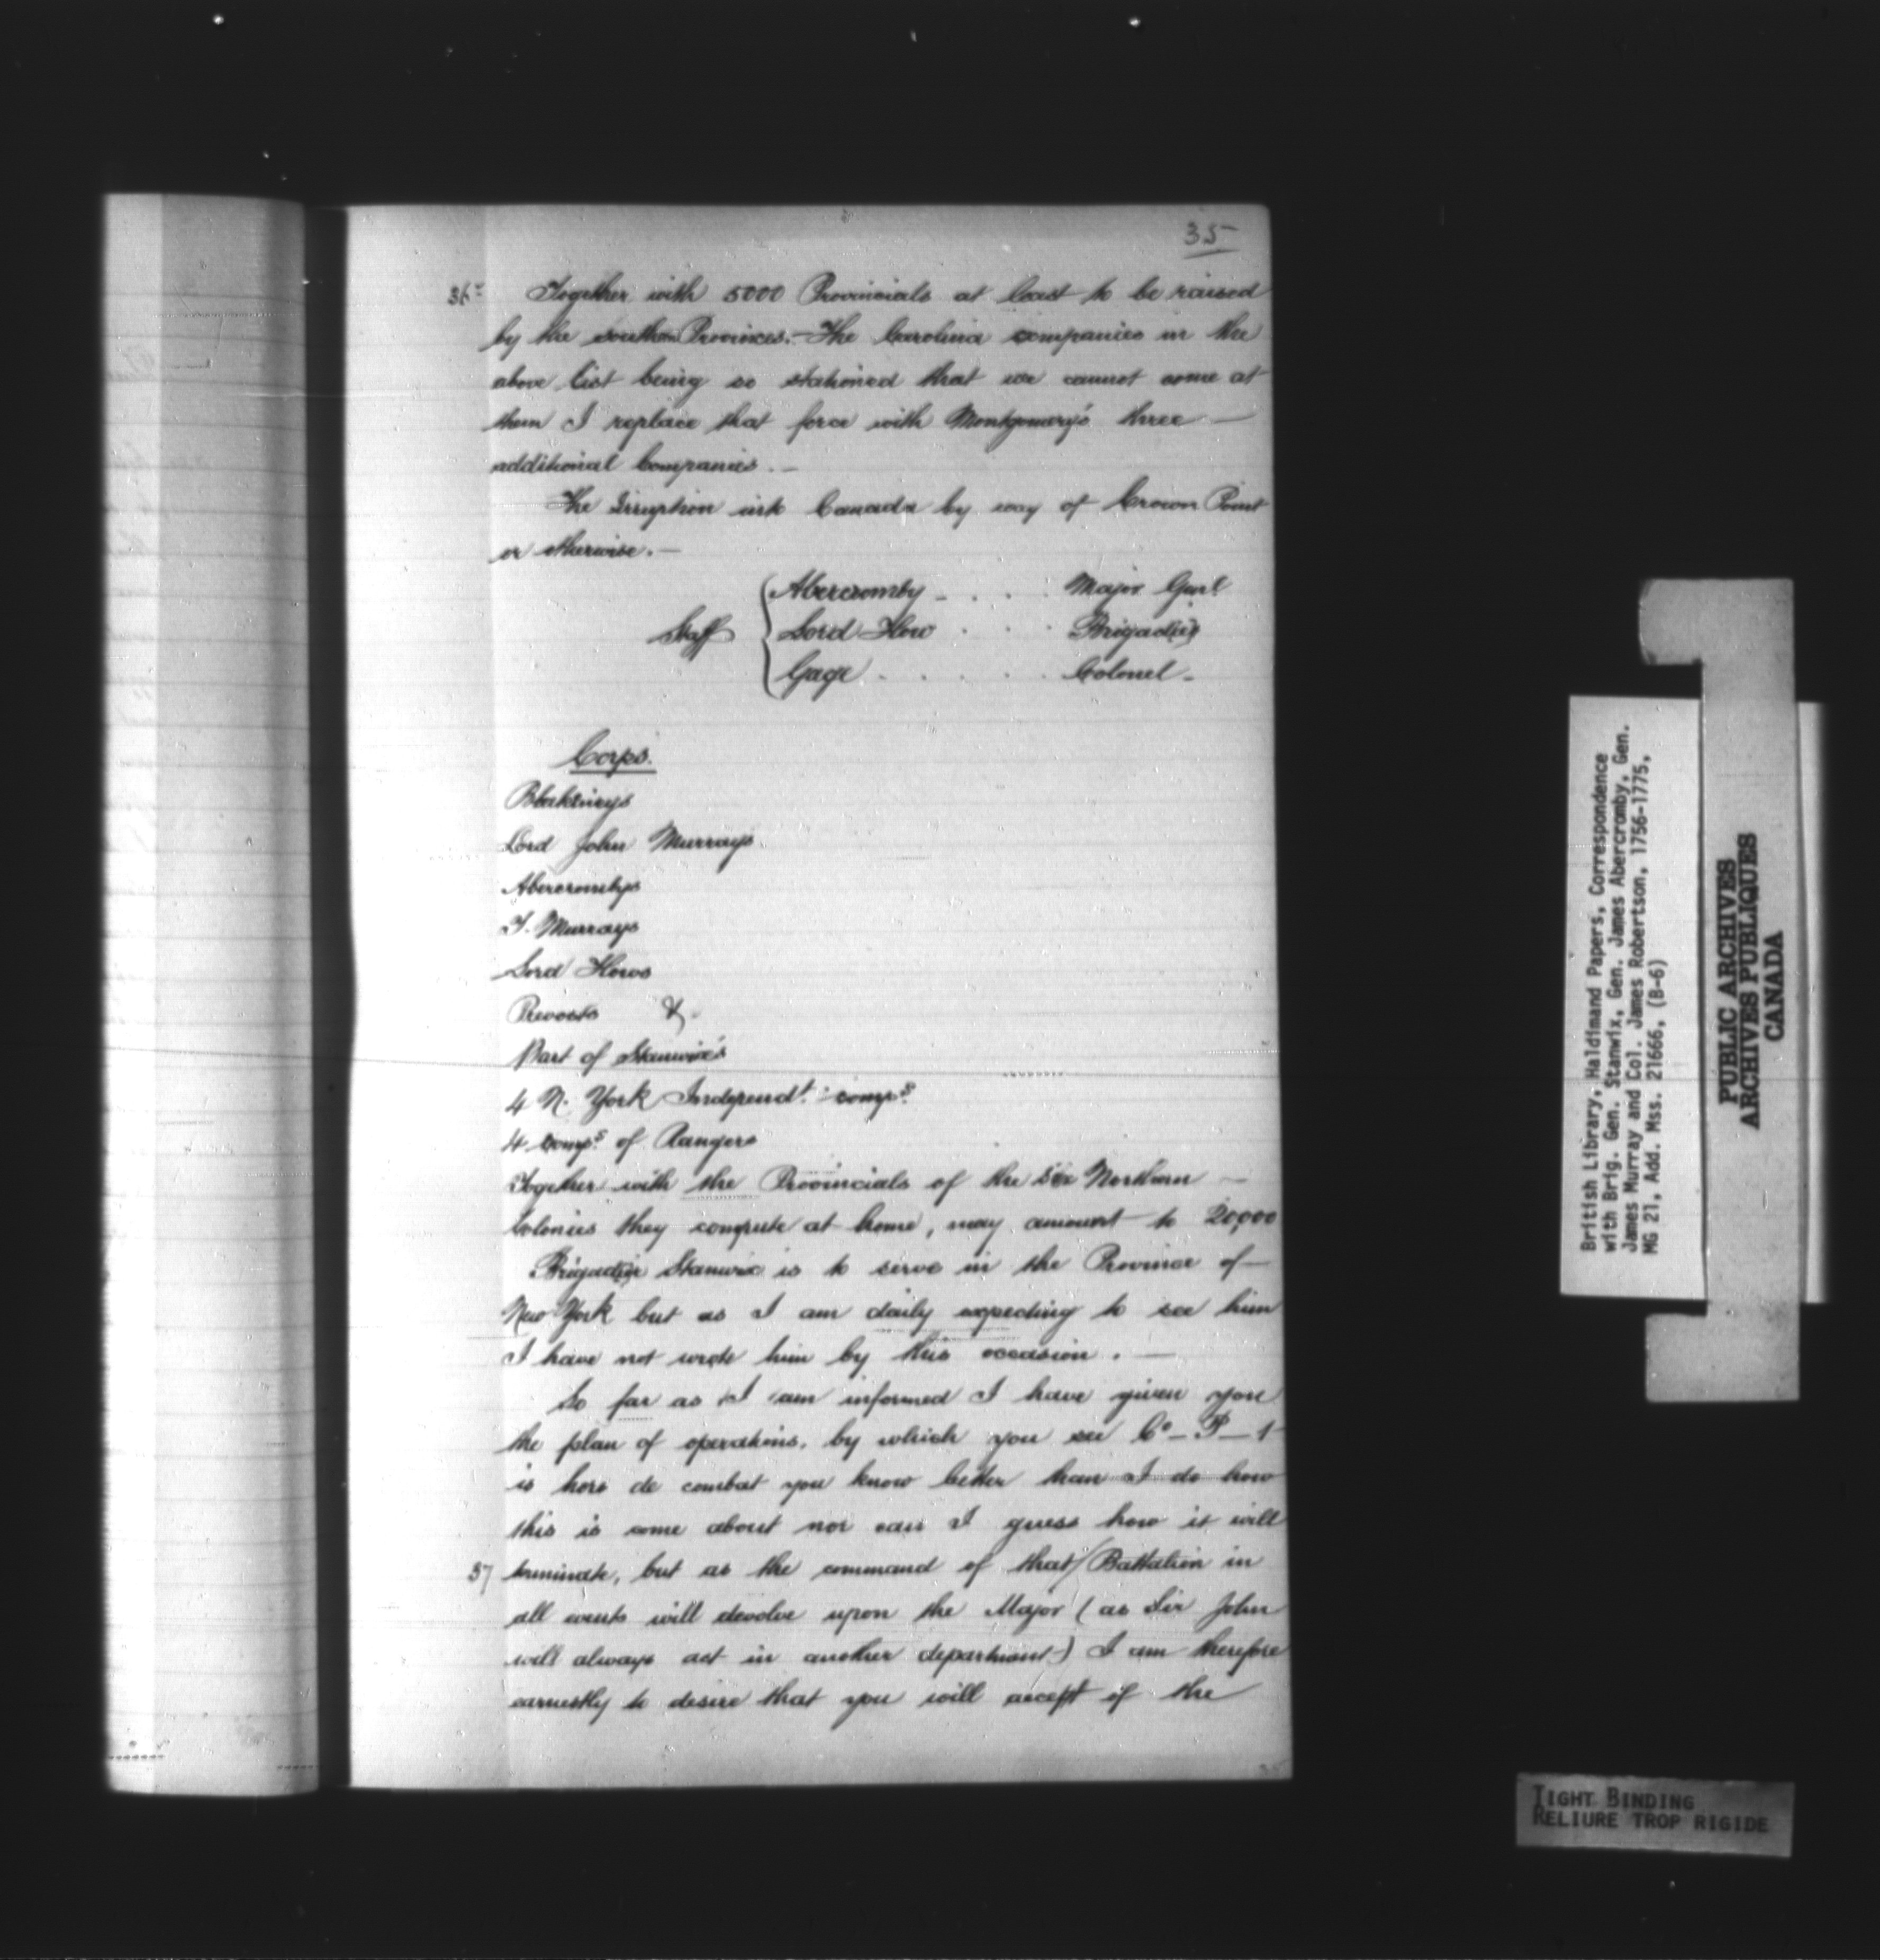 35
36
Together with 5000 Provincials at least to be raised
by the southern Provinces.— The Carolina companies in the
above list being so stationed that we cannot come at
them I replace that force with Montgomery's three —
additional Companies. —
The Irruption into Canada by way of Crown Point
or otherwise. —
Staff
Abercromby - . . . Major Genl
Lord How . . . Brigadier
Gage . . . . . Colonel -
Corps.
Blakeneys
Lord John Murrays
Abercrombys
J. Murrays
Lord Hows
Prevosts &.
Part of Stanwix's
4 N. York Independt. comps.
4 comps. of Rangers
Together with the Provincials of the six Northern —
Colonies they compute at home, may amount to 20,000
Brigadier Stanwix is to serve in the Province of —
New York but as I am daily expecting to see him
I have not wrote him by this occasion. —
So far as I am informed I have given you
the plan of operations, by which you see Co — P — t
is hors de combat you know better than I do how
this is come about nor can I guess how it will
37 terminate, but as the command of that / Battalion in
all events will devolve upon the Major (as Sir John
will always act in another department) I am therefore
earnestly to desire that you will accept of the
British Library, Haldimand Papers, Correspondence
with Brig. Gen. Stanwix, Gen. James Abercromby, Gen.
James Murray and Col. James Robertson, 1756-1775,
MG 21, Add. Mss. 21666, (B-6)
PUBLIC ARCHIVES
ARCHIVES PUBLIQUES
CANADA
TIGHT BINDING
RELIURE TROP RIGIDE